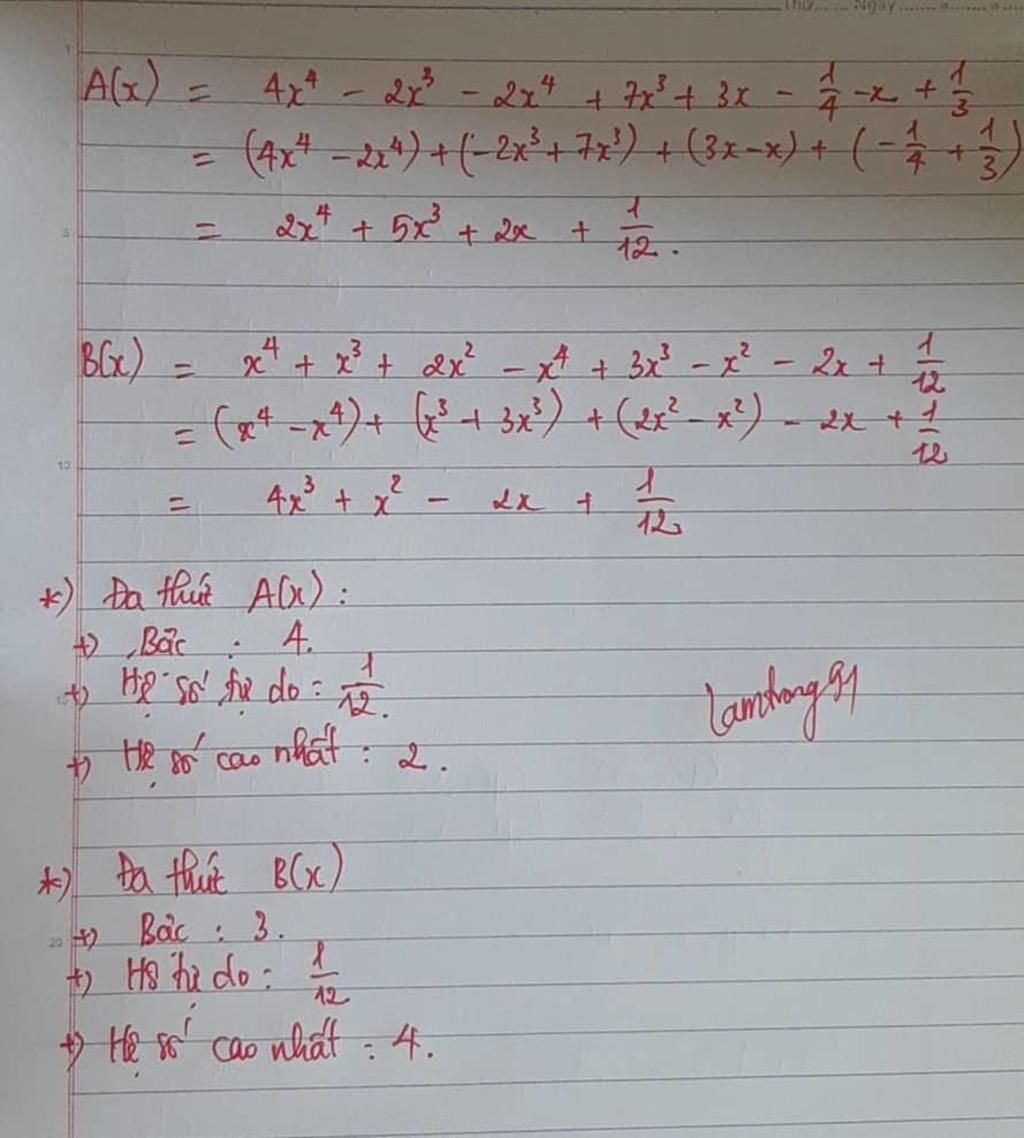 Thứ...... Ngày...........
A(x) = 4x⁴ - 2x³ - 2x⁴ + 7x³ + 3x - 1/4 - x + 1/3
= (4x⁴ - 2x⁴) + (-2x³ + 7x³) + (3x - x) + (-1/4 + 1/3)
5 = 2x⁴ + 5x³ + 2x + 1/12.
B(x) = x⁴ + x³ + 2x² - x⁴ + 3x³ - x² - 2x + 1/12
= (x⁴ - x⁴) + (x³ + 3x³) + (2x² - x²) - 2x + 1/12
10
= 4x³ + x² - 2x + 1/12
*) Đa thức A(x) :
+) Bậc : 4.
15 +) Hệ số tự do : 1/12.
Lamtrong91
+) Hệ số cao nhất : 2.
*) Đa thức B(x)
20 +) Bậc : 3.
+) HS tự do : 1/12
+) Hệ số cao nhất : 4.